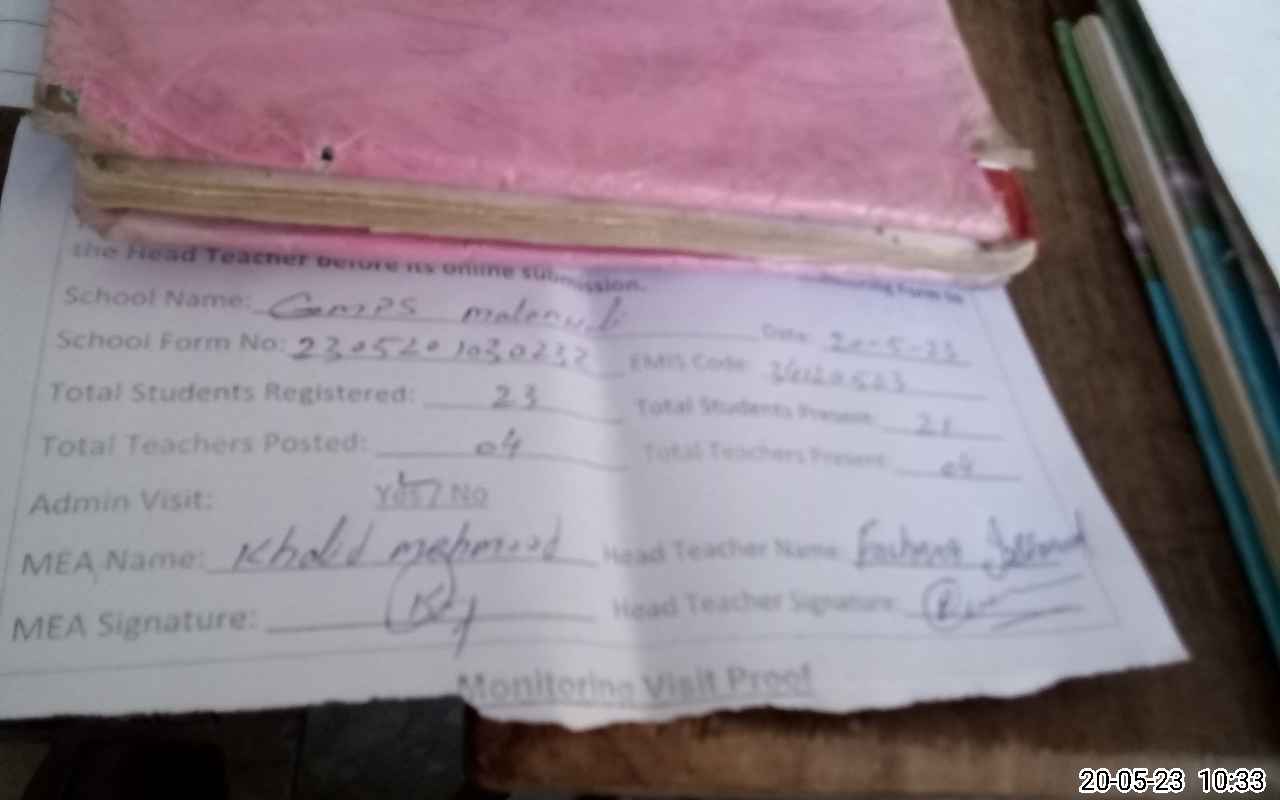 the Head Teacher before its online submission.
School Name: GMPS Date: 20-5-23
School Form No: 2305201030232 EMIS Code:
Total Students Registered: 23 Total Students Present: 21
Total Teachers Posted: 04 Total Teachers Present: 04
Admin Visit: Yes / No
MEA Name: Khalid mehmood Head Teacher Name:
MEA Signature: Head Teacher Signature:
Monitoring Visit Proof
20-05-23 10:33